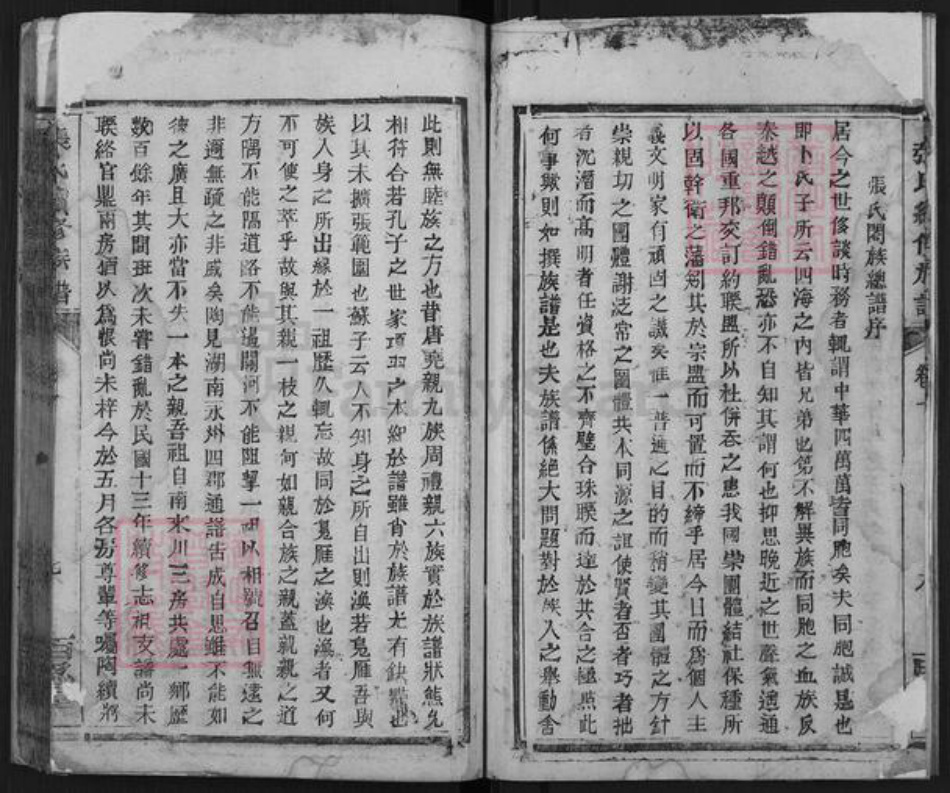 張氏閤族總譜序
居今之世修談時務者輒謂中華四萬萬皆同胞矣夫同胞誠是也
即卜氏子所云四海之內皆兄弟也第不解異族而同胞之血族反
秦越之顛倒錯亂恐亦不自知其謂何也抑思晚近之世聲氣遙通
各國重邦交訂約聯盟所以杜併吞之患我國崇團體結社保種所
以固幹衛之藩剡其於宗盟而可置而不締乎居今日而為個人主
義文明家有頑固之譏矣惟一普通之目的而稍變其團體之方針
崇親切之團體謝泛常之團體共木同源之誼使賢者否者巧者拙
者沉潛而高明者任資格之不齊璧合珠聯而達於共合之極點此
何事歟則如撰族譜是也夫族譜係絕大問題對於族人之舉動舍
此則無睦族之方也昔唐堯親九族周禮親六族實於族譜狀態先
相符合若孔子之世家項羽之本紀於譜雖肖於族譜大有缺點也
以其未擴張範圍也蘇子云人不知身之所自出則渙若鳧雁吾與
族人身之所出緣於一祖歷久輒忘故同於鳧雁之渙也渙者又何
不可使之萃乎故與其親一枝之親何如親合族之親蓋親親之道
方隅不能隔道路不能遙關河不能阻摯一呼以相號召自無遠之
非邇無疏之非戚矣陶見湖南永州四郡通譜告成自思雖不能如
彼之廣且大亦當不失一本之親吾祖自南來川三房共處一鄉歷
數百餘年其間班次未嘗錯亂於民國十三年續修志祖支譜尚未
聯絡官鼎兩房猶以為恨尚未梓今於五月各房尊輩等囑陶續將